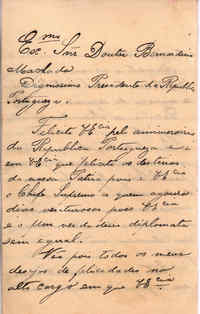 Exmo
Exc. Snr Doutor Bernardino
Machado
Digníssimo Presidente da Republica
Portugueza.
Felicito VExcia pelo anniversario
da Republica Portugueza e e
em VExcia que felicito os destinos
da nossa Patria pois é VExcia
o Chefe Supremo a quem agouro
dias venturosos pois VExcia
é o
sem egual.
Vão pois todos os meus
desejos de felicidades no
alto cargo em que VExcia